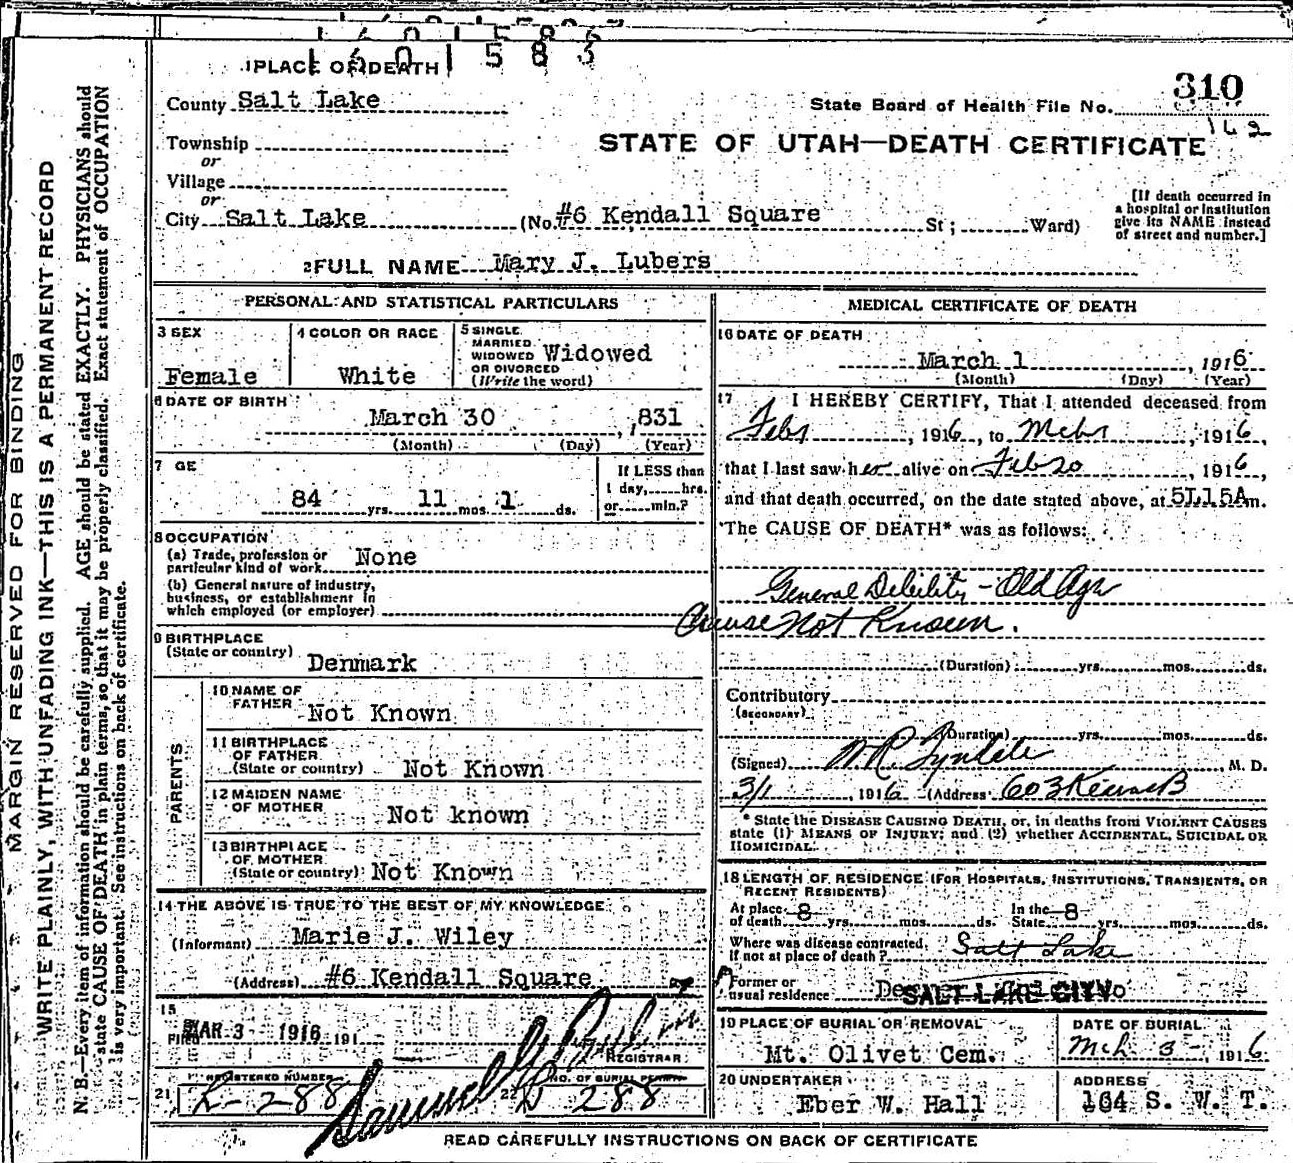 1601583
1 PLACE OF DEATH
County Salt Lake
State Board of Health File No. 310
162
Township
or
Village
or
City Salt Lake (No. #6 Kendall Square St; Ward)
STATE OF UTAH—DEATH CERTIFICATE
[If death occurred in
a hospital or institution
give its NAME instead
of street and number.]
2 FULL NAME Mary J. Lubers
PERSONAL AND STATISTICAL PARTICULARS
3 SEX
Female
4 COLOR OR RACE
White
5 SINGLE
MARRIED
WIDOWED
OR DIVORCED
(Write the word)
Widowed
6 DATE OF BIRTH
March 30 , 831
(Month) (Day) (Year)
7 GE
84 yrs. 11 mos. 1 ds.
If LESS than
1 day, hrs.
or min.?
8 OCCUPATION
(a) Trade, profession or
particular kind of work None
(b) General nature of industry,
business, or establishment in
which employed (or employer)
9 BIRTHPLACE
(State or country)
Denmark
PARENTS
10 NAME OF
FATHER Not Known
11 BIRTHPLACE
OF FATHER
(State or country) Not Known
12 MAIDEN NAME
OF MOTHER Not known
13 BIRTHPLACE
OF MOTHER
(State or country) Not Known
14 THE ABOVE IS TRUE TO THE BEST OF MY KNOWLEDGE
(Informant) Marie J. Wiley
(Address) #6 Kendall Square
15
MAR 3 1916 191
REGISTRAR
21 REGISTERED NUMBER
288
22 NO. OF BURIAL PERMIT
288
MEDICAL CERTIFICATE OF DEATH
16 DATE OF DEATH
March 1 , 1916
(Month) (Day) (Year)
17 I HEREBY CERTIFY, That I attended deceased from
, 1916, to , 1916,
that I last saw her alive on Feb 20 , 1916,
and that death occurred, on the date stated above, at 5L15A m.
The CAUSE OF DEATH* was as follows:
General Debility - Old Age
Cause Not Known.
(Duration) yrs. mos. ds.
Contributory
(SECONDARY)
(Duration) yrs. mos. ds.
(Signed) , M. D.
3/1 , 1916 (Address) 603
* State the DISEASE CAUSING DEATH, or, in deaths from VIOLENT CAUSES
state (1) MEANS OF INJURY; and (2) whether ACCIDENTAL, SUICIDAL OR
HOMICIDAL.
18 LENGTH OF RESIDENCE (FOR HOSPITALS, INSTITUTIONS, TRANSIENTS, OR
RECENT RESIDENTS)
At place of death 8 yrs. mos. ds. In the State 8 yrs. mos. ds.
Where was disease contracted,
If not at place of death? Salt Lake
Former or
usual residence SALT LAKE CITY
19 PLACE OF BURIAL OR REMOVAL
Mt. Olivet Cem.
DATE OF BURIAL
Mch 3 , 1916
20 UNDERTAKER
Eber W. Hall
ADDRESS
164 S. W. T.
READ CAREFULLY INSTRUCTIONS ON BACK OF CERTIFICATE
MARGIN RESERVED FOR BINDING
WRITE PLAINLY, WITH UNFADING INK—THIS IS A PERMANENT RECORD
N. B.—Every item of information should be carefully supplied. AGE should be stated EXACTLY. PHYSICIANS should
state CAUSE OF DEATH in plain terms, so that it may be properly classified. Exact statement of OCCUPATION
is very important. See instructions on back of certificate.